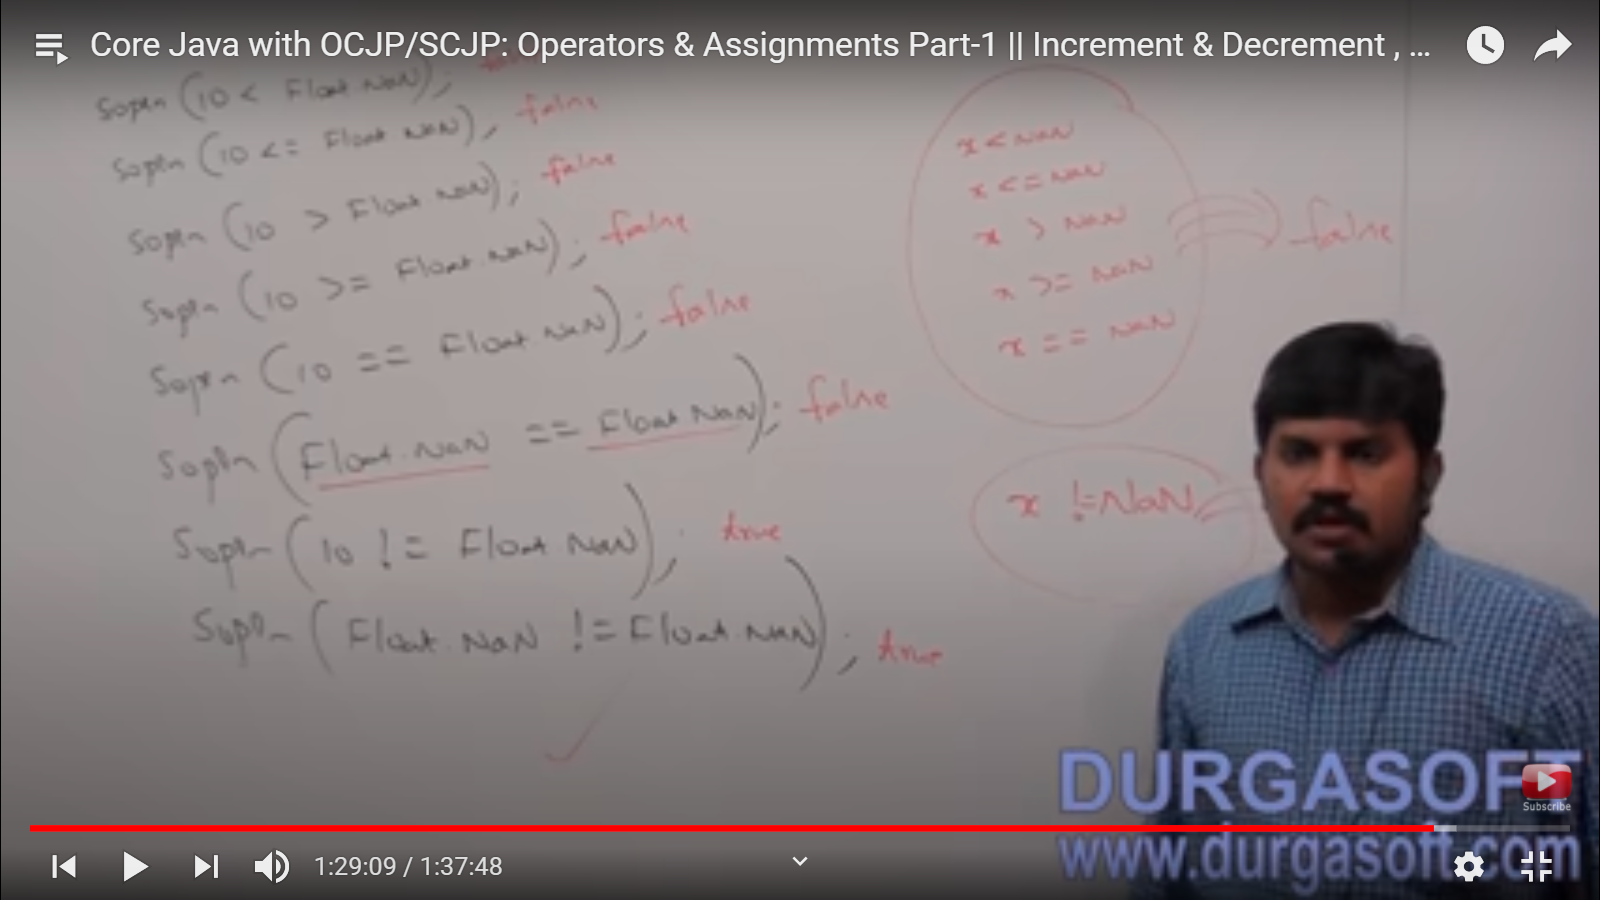 Core Java with OCJP/SCJP: Operators & Assignments Part-1 || Increment & Decrement , ...
Sopln (10 < Float.NaN);
Sopln (10 <= Float.NaN); false
Sopln (10 > Float.NaN); false
Sopln (10 >= Float.NaN); false
Sopln (10 == Float.NaN); false
Sopln (Float.NaN == Float.NaN); false
Sopln (10 != Float.NaN); true
Sopln (Float.NaN != Float.NaN); true
x < NaN
x <= NaN
x > NaN
x >= NaN
x == NaN
false
x != NaN
DURGASOFT
www.durgasoft.com
Subscribe
1:29:09 / 1:37:48